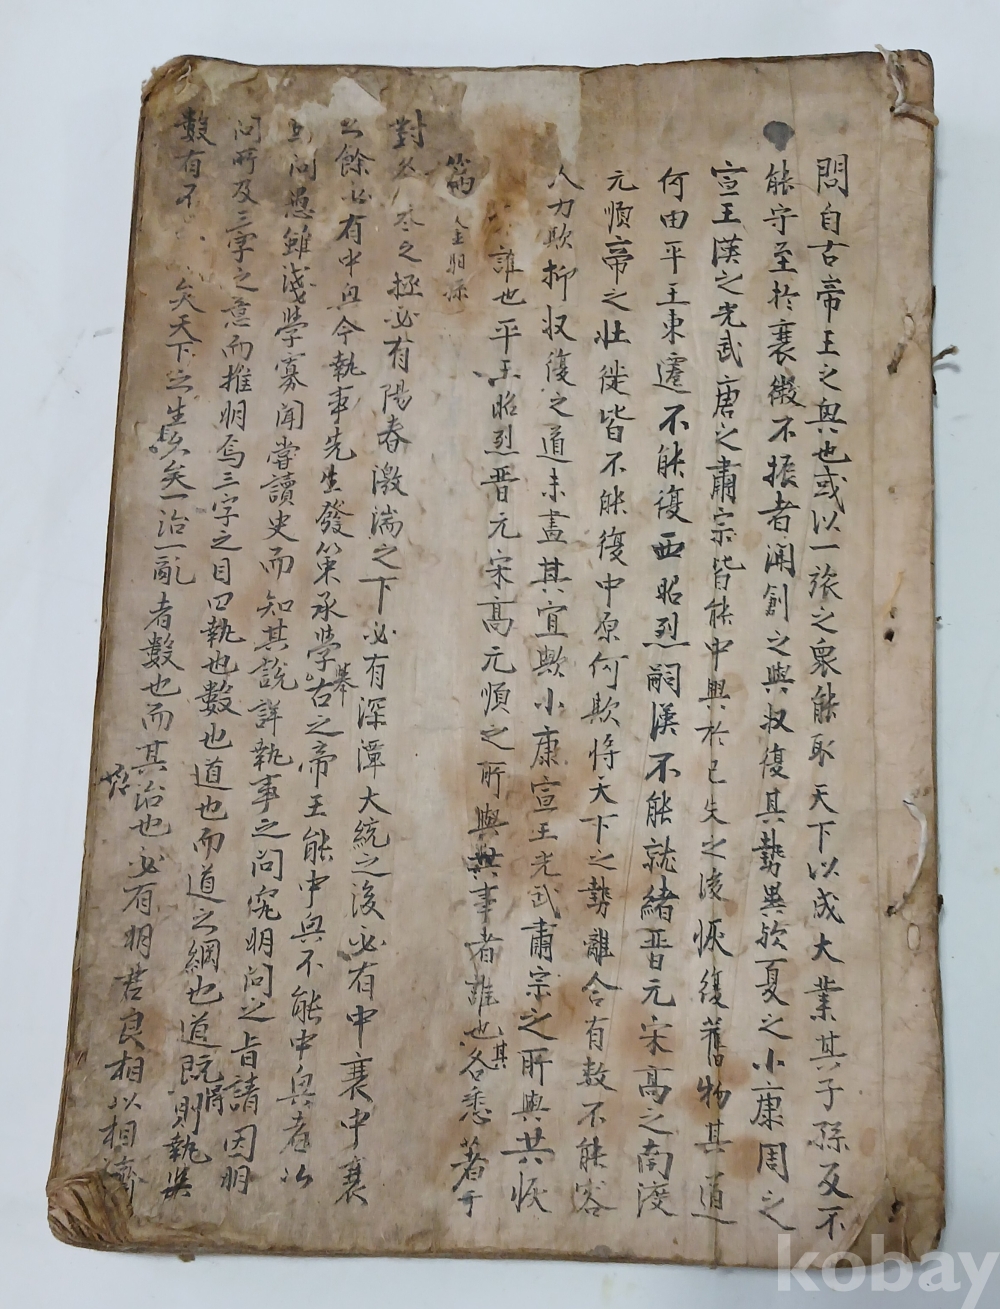 問自古帝王之興也或以一旅之衆能取天下以成大業其子孫反不
能守至於衰微不振者開創之與収復其勢異歟夏之小康周之
宣王漢之光武唐之肅宗皆能中興於已失之後恢復舊物其道
何由平王東遷不能復西昭烈嗣漢不能就緒晋元宋高之南渡
元順帝之壯徙皆不能復中原何欤将天下之勢離合有数不能容
人力欤抑収復之道未盡其宜欤小康宣王光武肅宗之所與共恢
誰也平王昭烈晋元宋高元順之所與共事者誰也其各悉著于
篇
對 之極必有陽春激湍之下必有深潭大統之後必有中衰中衰
之餘必有中興今執事先生發策承學舉古之帝王能中興不能中興者以
問愚雖淺學寡聞嘗讀史而知其說詳執事之問究明問之旨請因明
問所及三字之意而推明焉三字之目曰執也數也道也而道之綱也道既得則執與
數有不 矣天下之生久矣一治一亂者數也而其治也必有明君良相以相濟
kobay